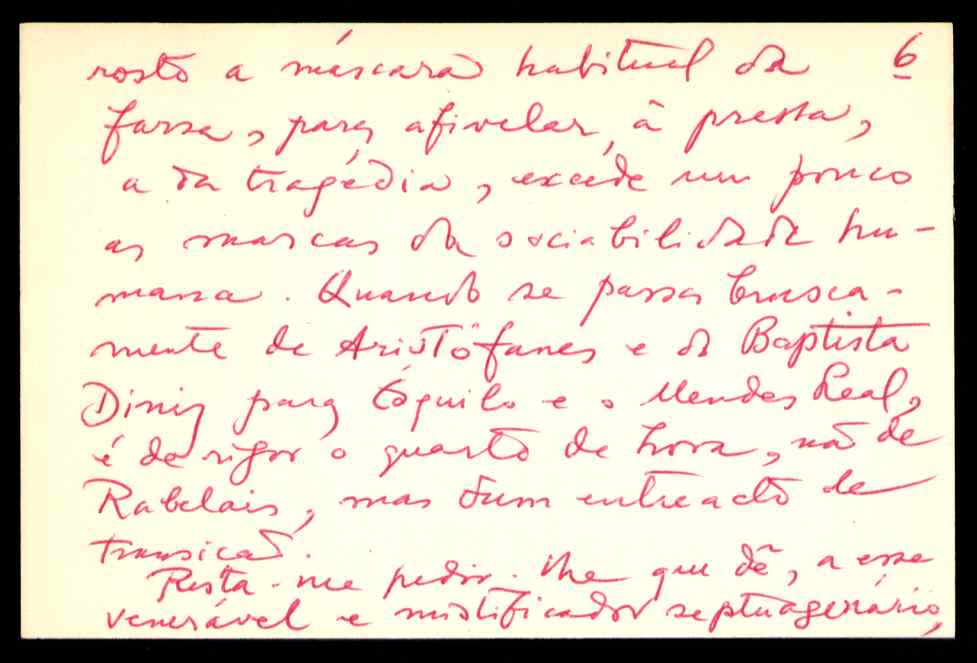 6
rosto a máscara habitual da
farsa, para afivelar, à pressa,
a da tragédia, excede um pouco
as marcas da sociabilidade hu-
mana. Quando se passa brusca-
mente de Aristófanes e do Baptista
Diniz para Ésquilo e o Mendes Leal,
é de rigor o quarto de hora, não de
Rabelais, mas dum entreacto de
transição.
Resta-me pedir-lhe que dê, a esse
venerável e mistificador septuagenário,